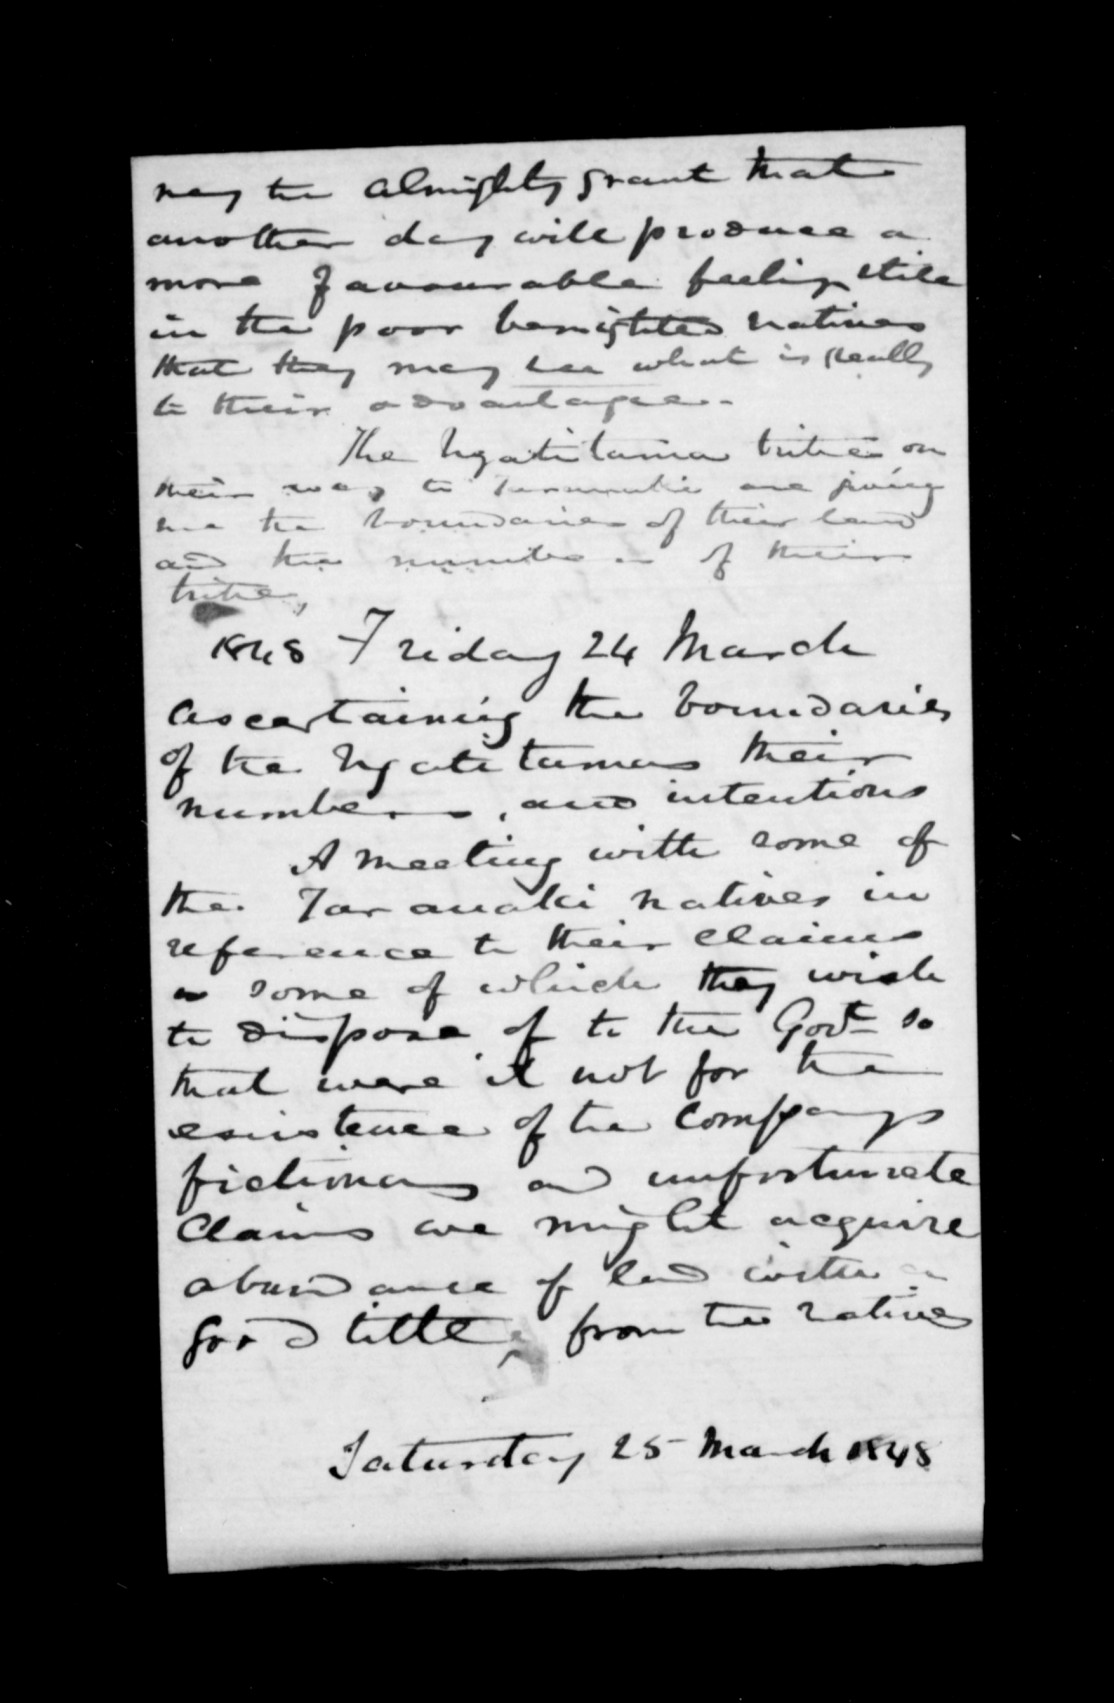 may the Almighty grant that
another day will produce a
more favourable feeling still
in the poor benighted natives
that they may see what is really
to their advantage.
The Ngatitama tribe on
their way to Taranaki are giving
me the boundaries of their land
and the numbers of their
tribe,
1848 Friday 24 March
Ascertaining the boundaries
of the Ngatitamas their
numbers, and intentions
A meeting with some of
the Taranaki natives in
reference to their claims
some of which they wish
to dispose of to the Govt so
that were it not for the
existence of the Companys
fictionary and unfortunate
Claims we might acquire
abundance of land with a
good title, from the natives
Saturday 25 March 1848